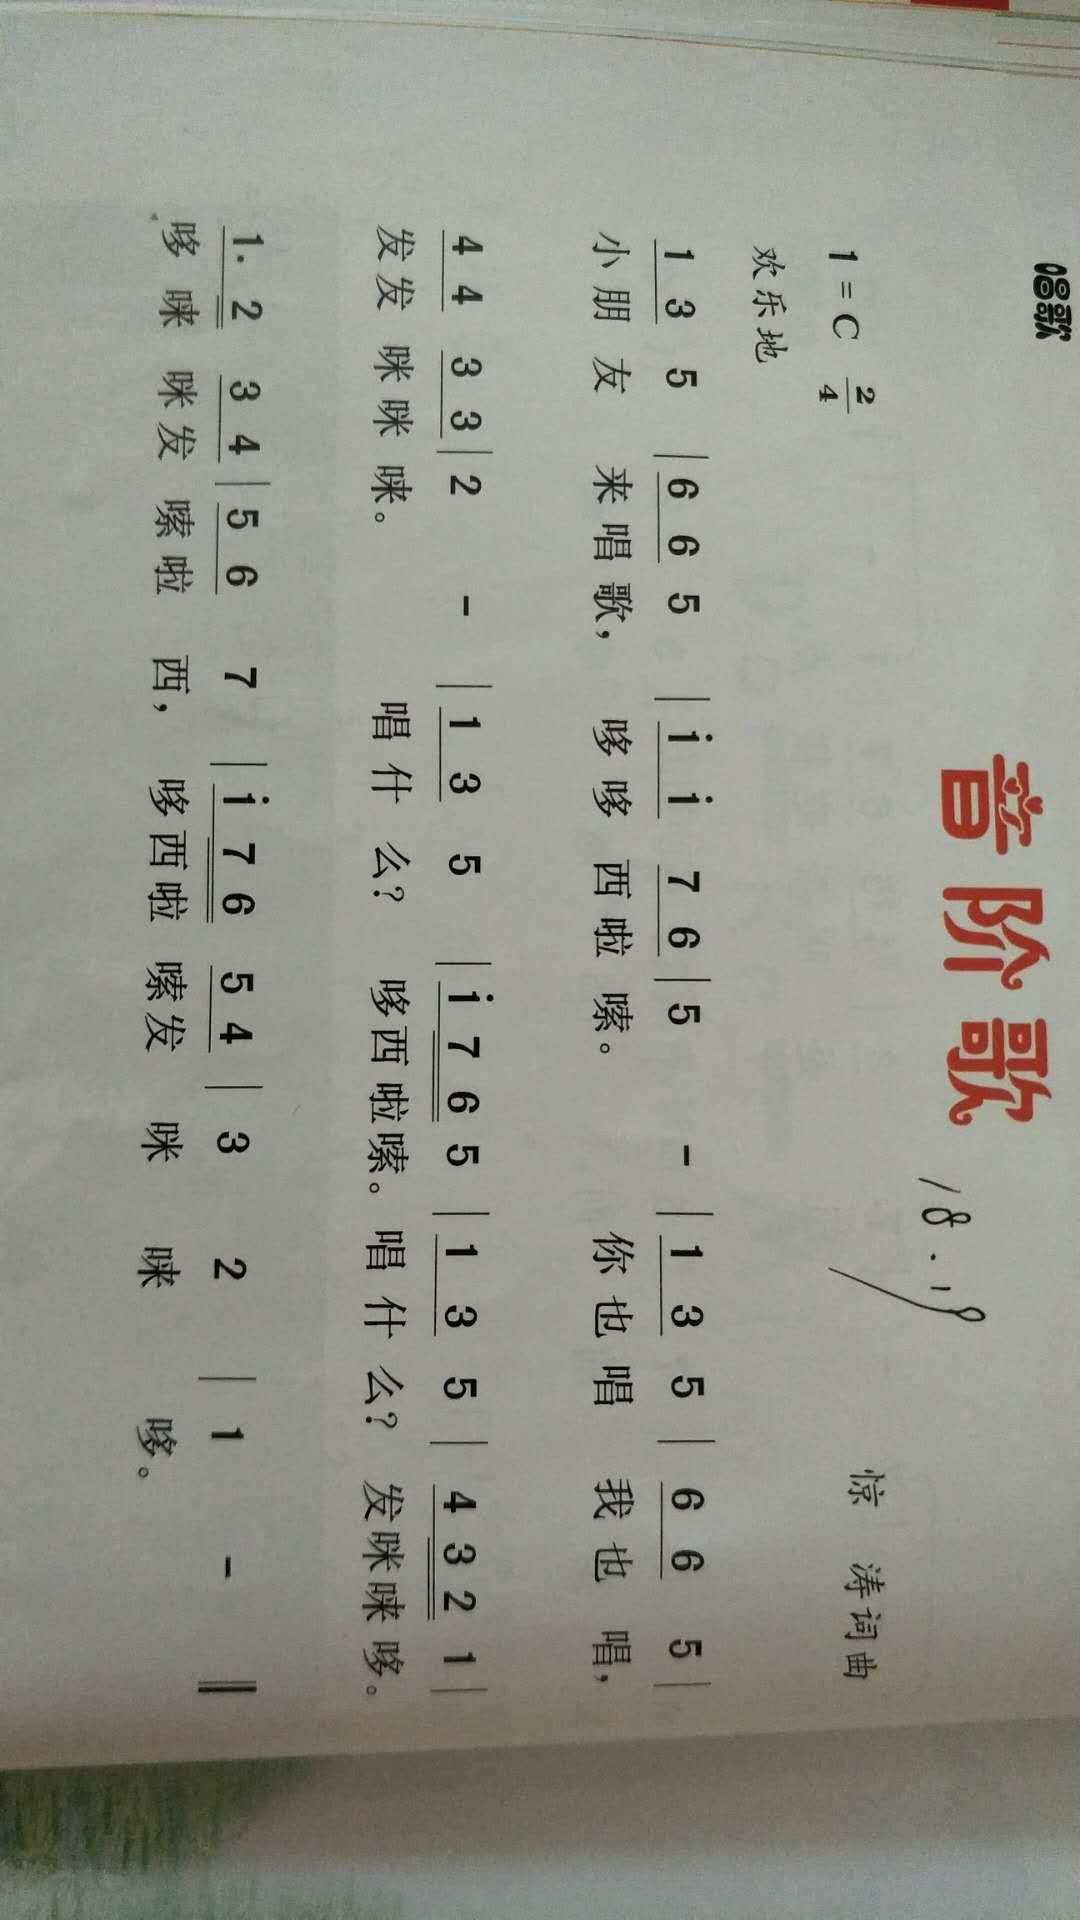 唱歌
音阶歌
18.19
1=C 2/4
惊 涛词曲
欢乐地
1 3 5 | 6 6 5 | i i 7 6 | 5 - | 1 3 5 | 6 6 5 |
小朋友 来唱歌， 哆哆西啦嗦。 你也唱 我也唱，
4 4 3 3 | 2 - | 1 3 5 | i 7 6 5 | 1 3 5 | 4 3 2 1 |
发发咪咪咪。 唱什么？ 哆西啦嗦。 唱什么？ 发咪咪哆。
1. 2 3 4 | 5 6 7 | i 7 6 5 4 | 3 2 | 1 - ‖
哆咪咪发嗦啦西， 哆西啦嗦发咪咪哆。